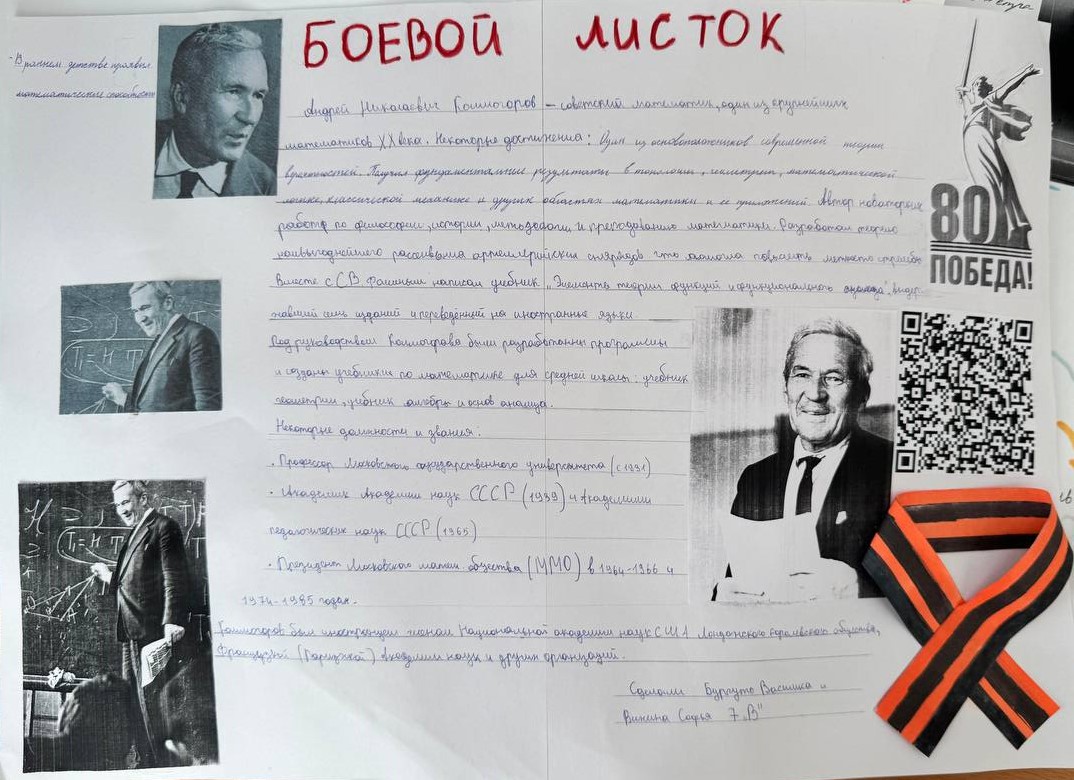 БОЕВОЙ ЛИСТОК
- В раннем детстве проявил
математические способности
Андрей Николаевич Колмогоров – советский математик, один из крупнейших
математиков XX века. Некоторые достижения: Один из основоположников современной теории
вероятностей. Получил фундаментальные результаты в топологии, геометрии, математической
логике, классической механике и других областях математики и её приложений. Автор новаторских
работ по философии, истории, методологии и преподаванию математики. Разработал теорию
наивыгоднейшего рассеивания артиллерийских снарядов что помогла повысить меткость стрельбы
Вместе с С В Фоминым написал учебник „Элементы теории функций и функционального анализа", выдер-
жавший семь изданий и переведённый на иностранные языки
Под руководством Колмогорова были разработаны программы
и созданы учебники по математике для средней школы: учебник
геометрии, учебник алгебры и основ анализа.
Некоторые должности и звания:
• Профессор Московского государственного университета (с 1931)
• Академик Академии наук СССР (1939) и Академии
педагогических наук СССР (1965)
• Президент Московского матем общества (ММО) в 1964-1966 и
1974-1985 годах.
Колмогоров был иностранным членом Национальной академии наук США Лондонского королевского общества,
Французской (Парижской) Академии наук и других организаций.
Сделали Бургуто Василиса и
Винина Софья 7 „В"
80
ПОБЕДА!